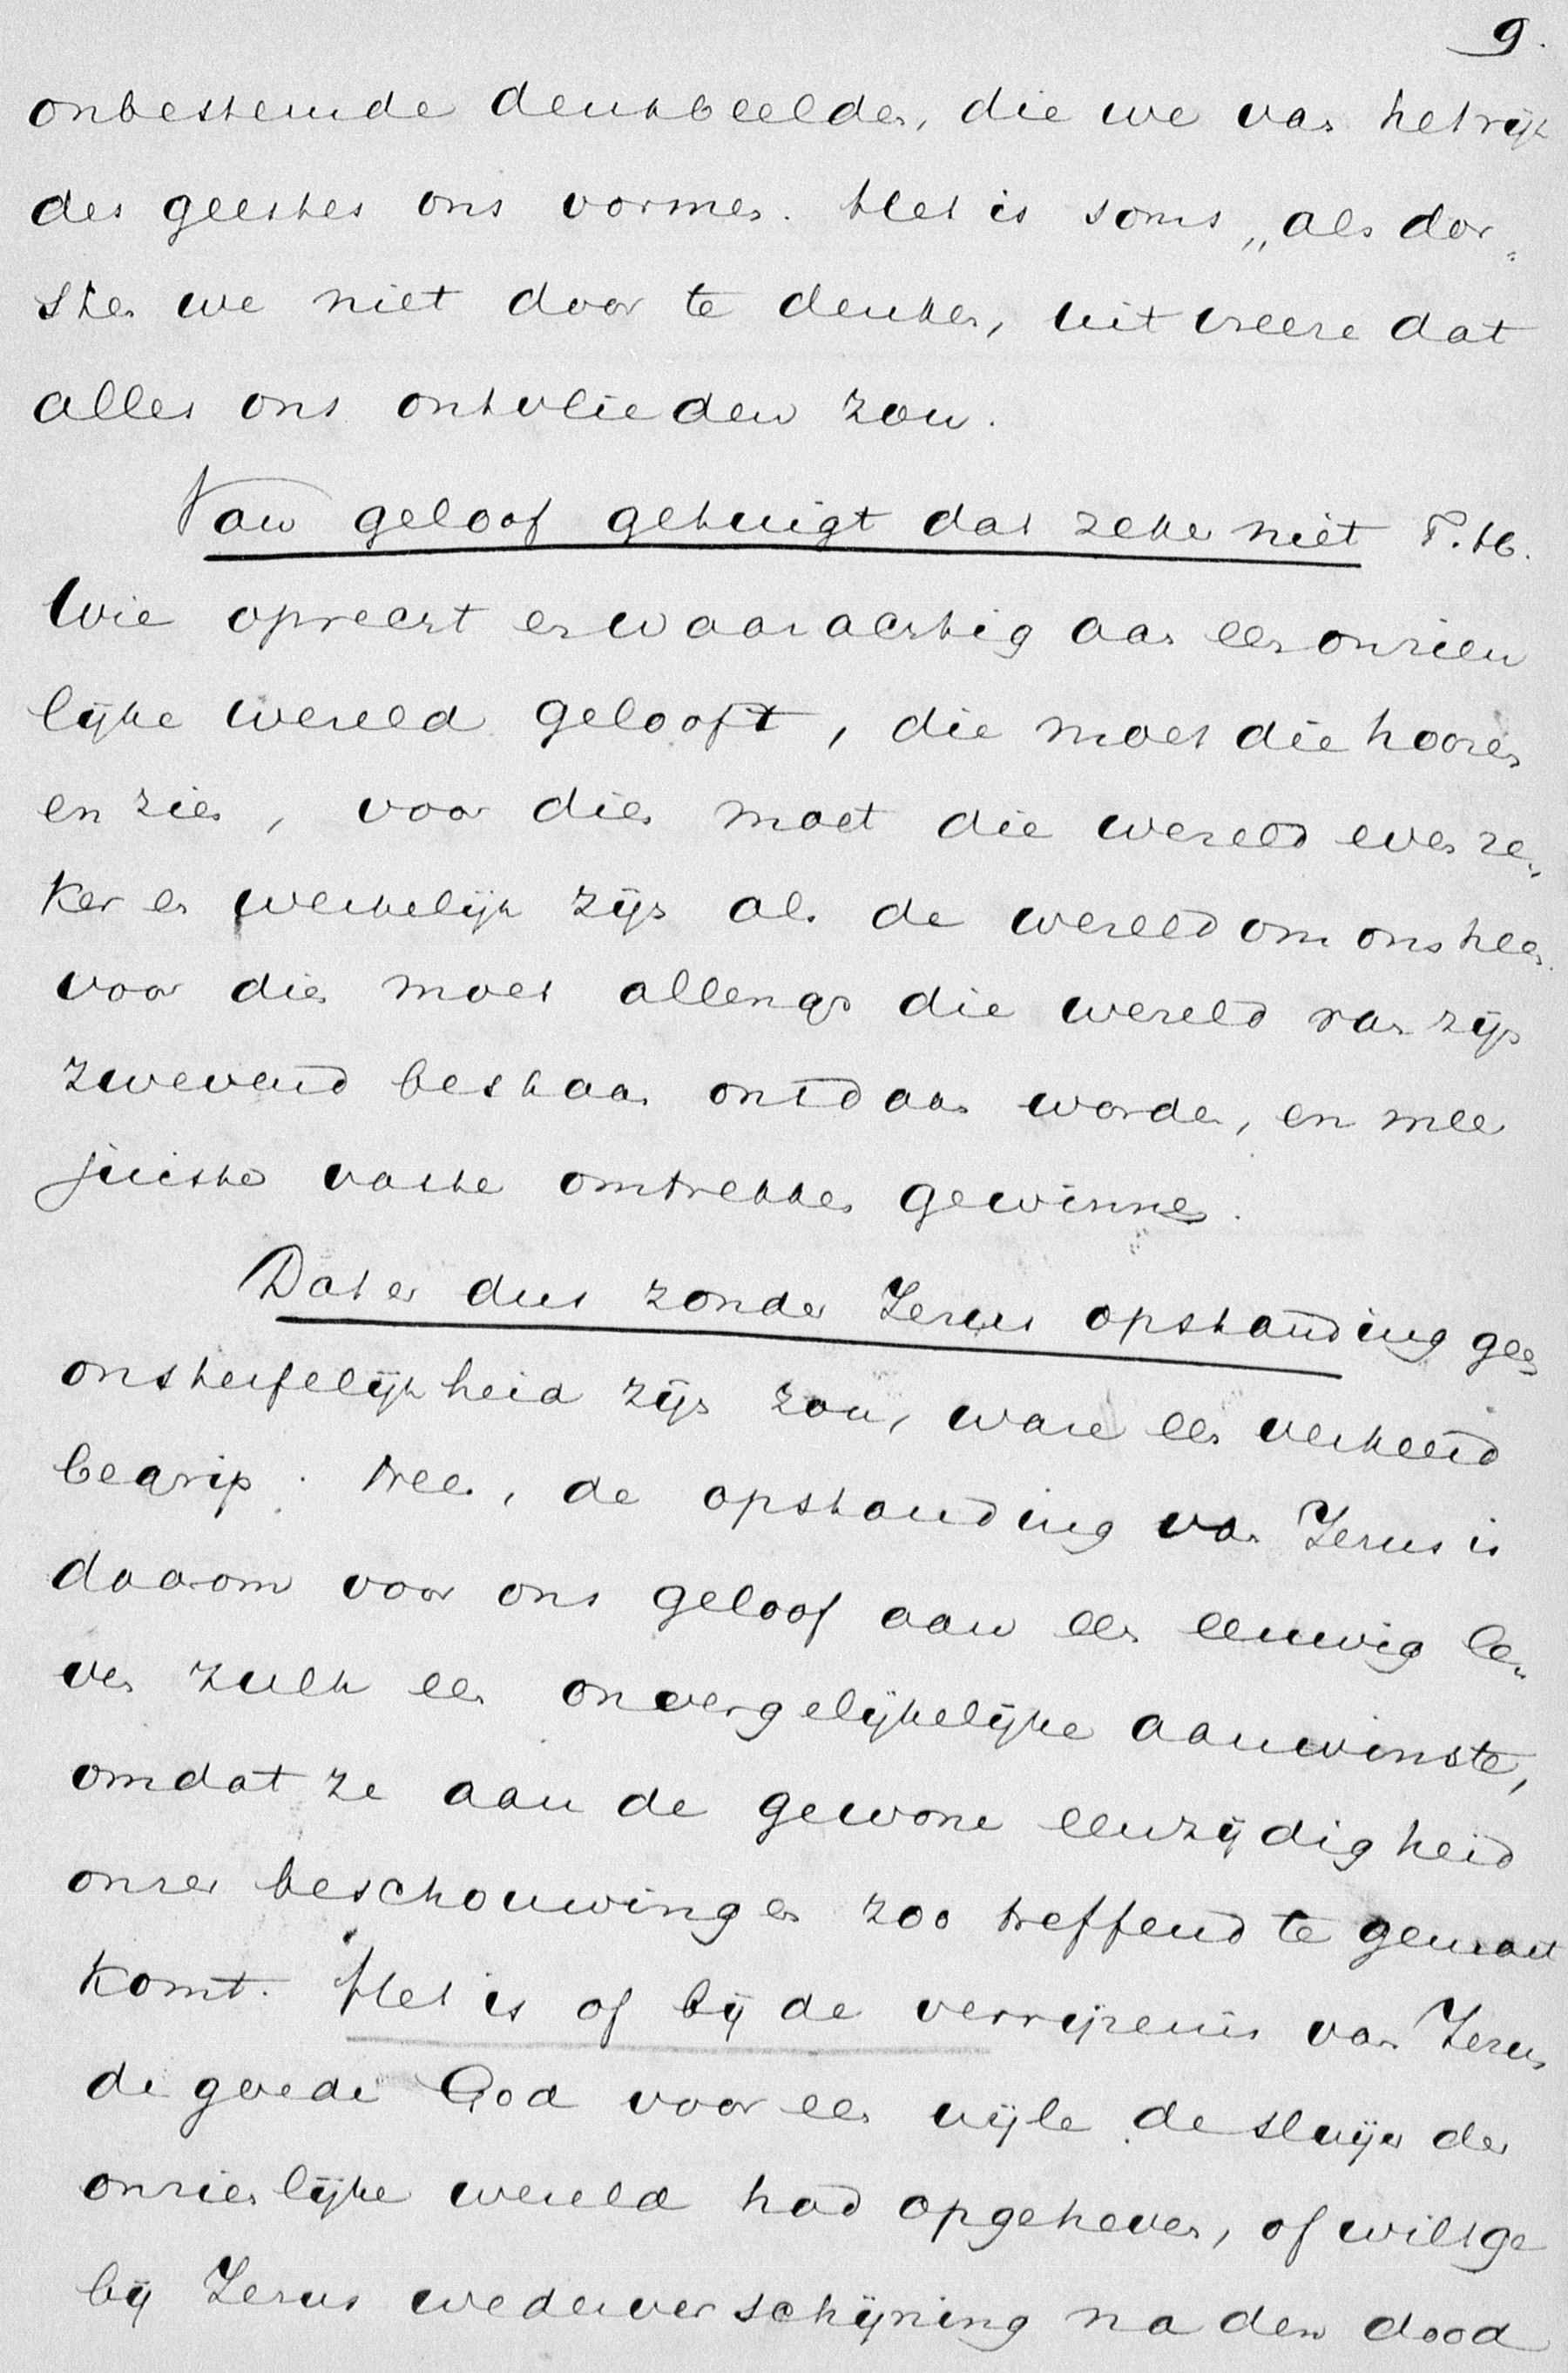 9.
onbestemde denkbeelden, die we van het rijk
des geestes ons vormen. Het is soms „als dor„
sten we niet door te denken, uit vreeze dat
alles ons ontvlieden zou.
Van geloof getuigt dat zeker niet T. H.
Wie oprecht en waarachtig aan een onzien
lijke wereld gelooft, die moet die hooren
en zien, voor dien moet die wereld even ze„
ker en werkelijk zijn als de wereld om ons heen.
voor dien moet allengs die wereld van zijn
zwevend bestaan ontdaan worden, en meer
juiste vaste omtrekken gewinnen.
Dat er dus zonder Jezus opstanding geen
onsterfelijkheid zijn zou, ware een verkeerd
begrip. Neen, de opstanding van Jezus is
daarom voor ons geloof aan een eeuwig le„
ven zulk een onvergelijkelijke aanwinste,
omdat ze aan de gewone eenzijdigheid
onzer beschouwingen zoo treffend te gemoet
komt. Het is of bij de verrijzenis van Jezus
de goede God voor een wijle de sluijer der
onzienlijke wereld had opgeheven, of wilt ge
bij Jezus wederverschijning na den dood